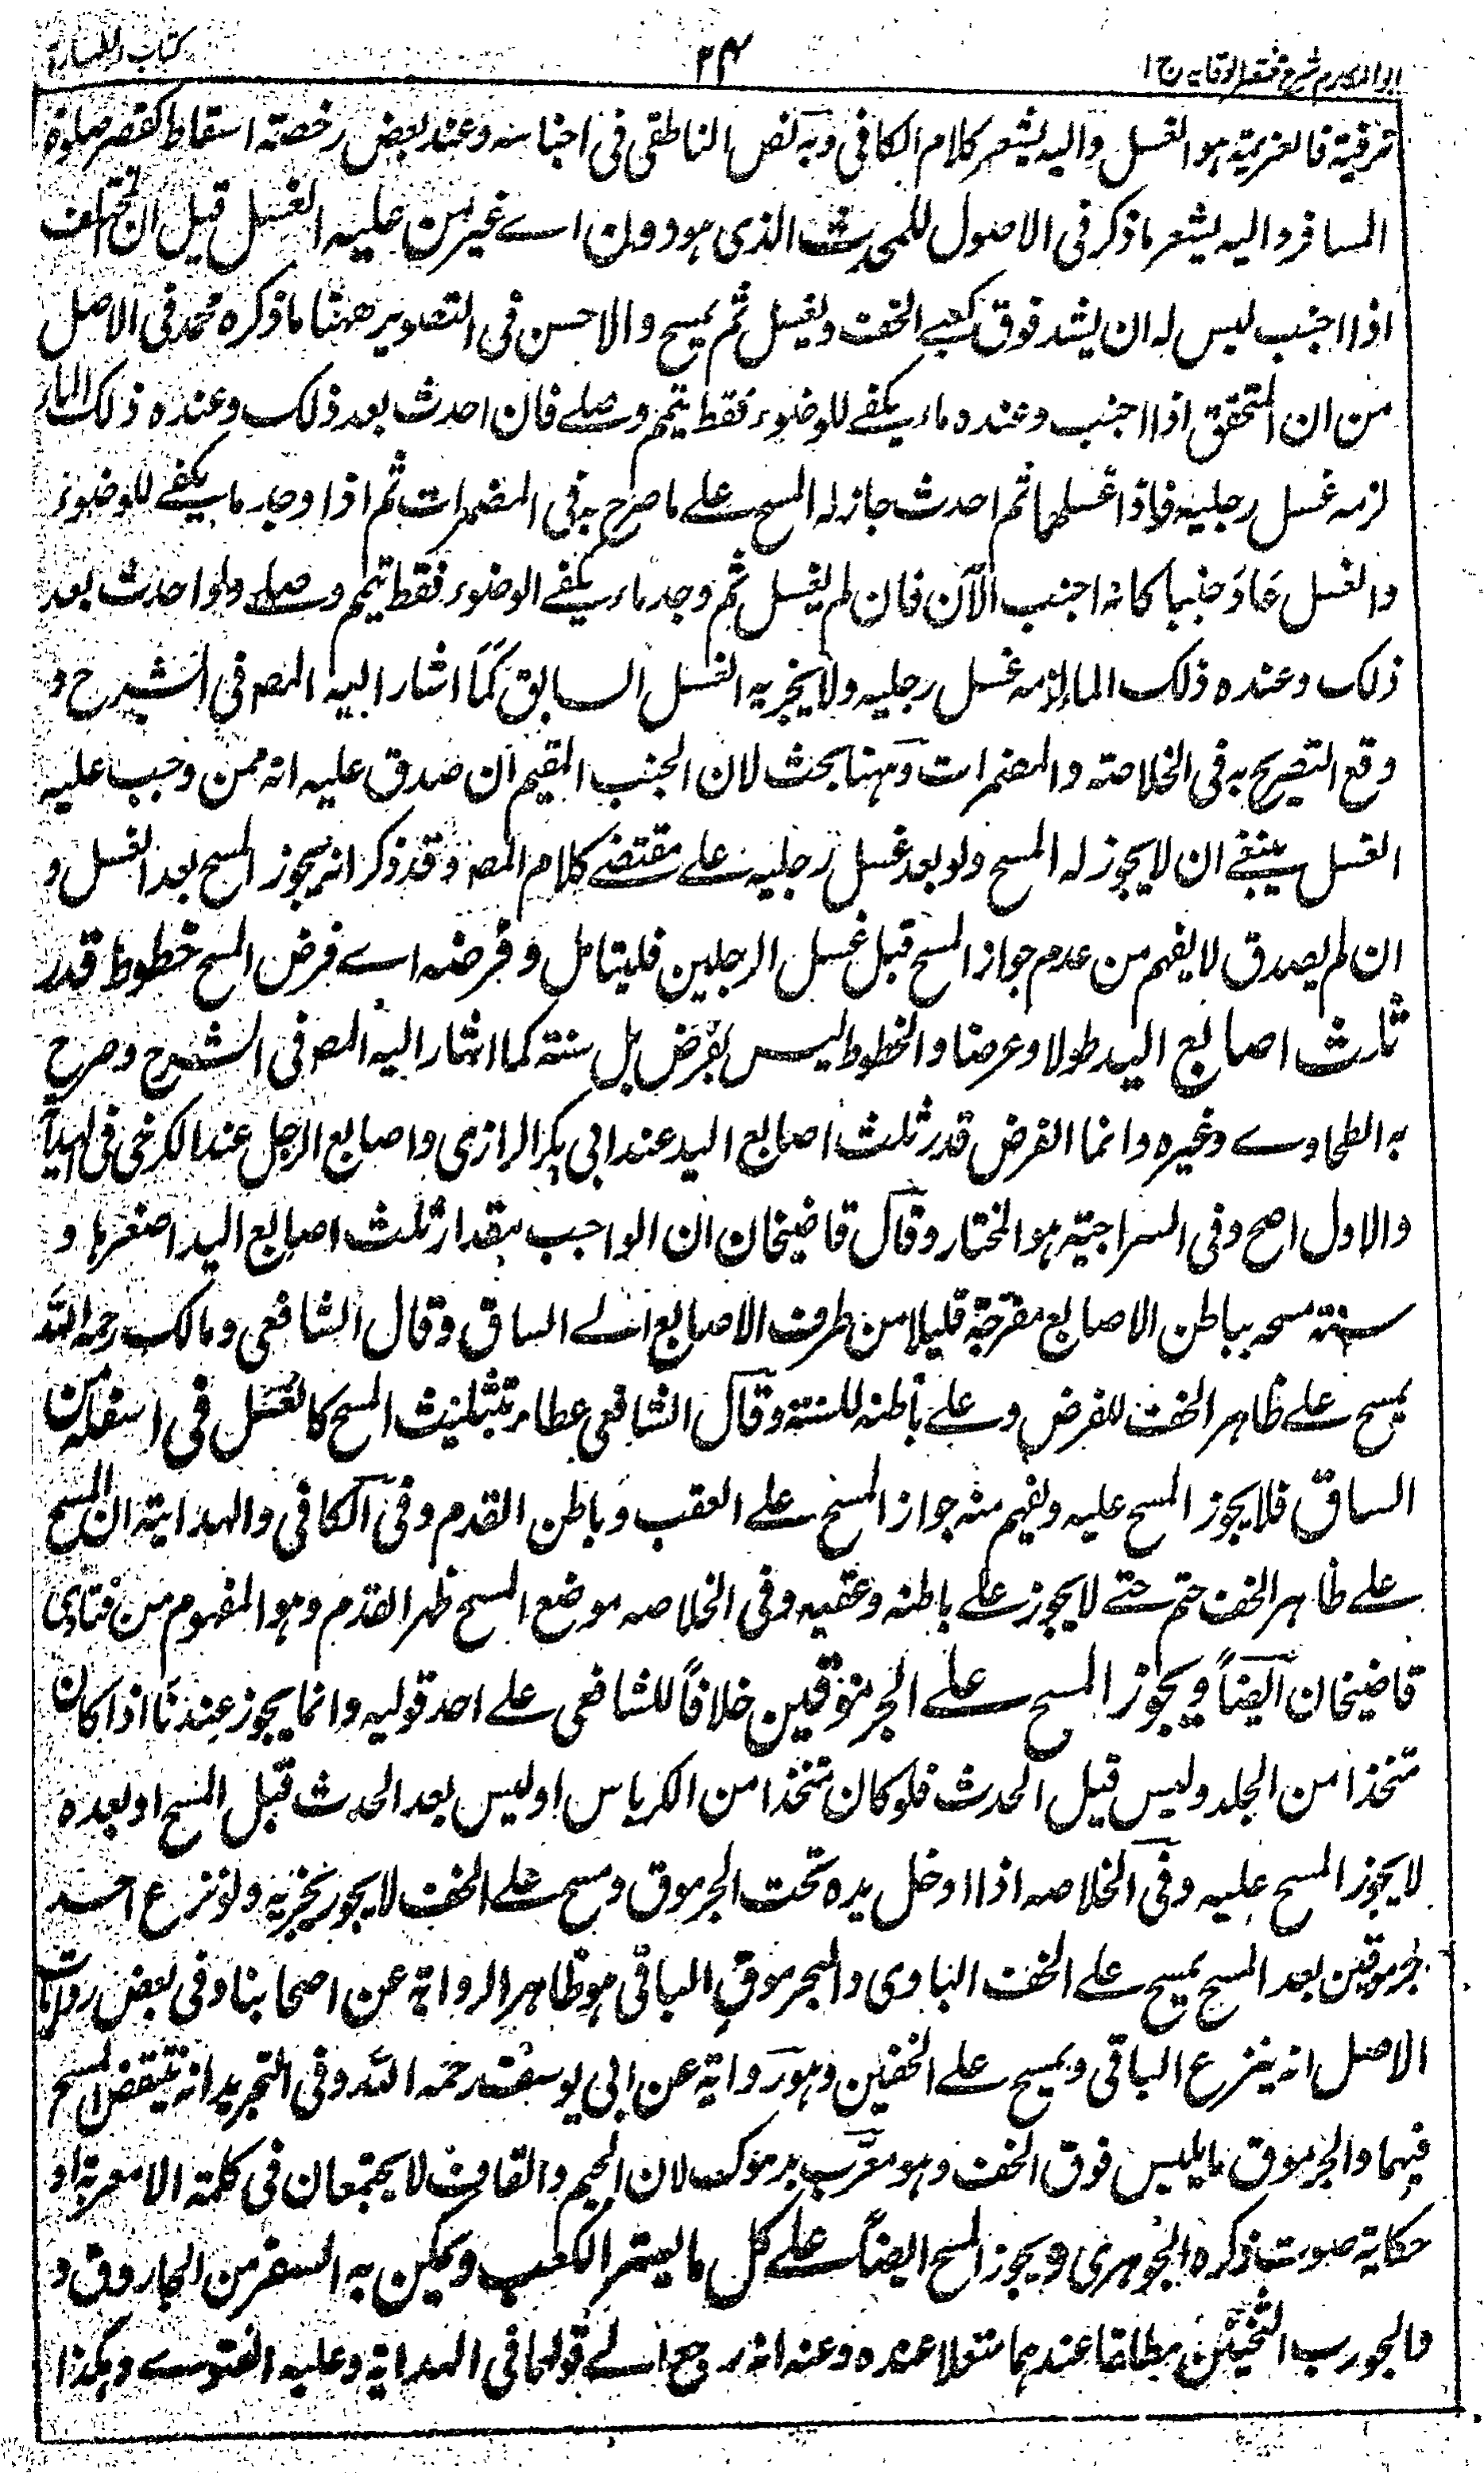 ابو المكارم شرح مختصر الوقايه ج ١
٢٤
كتاب الطهارة
ترفية فالعزيمة هو الغسل واليه يشعر كلام الكافى وبه نص الناطفى فى اجناسه وعند بعض رخصته اسقاط كقصر صلوة
المسافر واليه يشعر ماذكر فى الاصول للمحدث الذى هو دون اے غير من عليه الغسل قيل ان تخلف
اذا اجنب ليس له ان يشد فوق كعبے الخف ويغسل ثم يمسح والاحسن فى التصوير ههنا ماذكره محمد فى الاصل
من ان المتحقق اذا اجنب وعنده ماء يكفے للوضوء فقط تيمم وصلے فان احدث بعد ذلك وعنده ذلك الماء
لزمه غسل رجليه فاذا غسلهما ثم احدث جاز له المسح علے ما صرح به فى المضمرات ثم اذا وجد ما يكفے للوضوء
والغسل عاد جنبا كانه اجنب الآن فان لم يغسل ثم وجد ماء يكفے الوضوء فقط تيمم وصلے ولو احدث بعد
ذلك وعنده ذلك الماء لزمه غسل رجليه ولا يجزيه الغسل السابق كما اشار اليه المصـ فى الشرح و
وقع التصريح به فى الخلاصة والمضمرات وههنا بحث لان الجنب المقيم ان صدق عليه انه ممن وجب عليه
الغسل ينبغے ان لا يجوز له المسح ولو بعد غسل رجليه علے مقتضے كلام المصـ وقد ذكر انه يجوز المسح بعد الغسل و
ان لم يصدق لا يفهم من عدم جواز المسح قبل غسل الرجلين فليتامل وفرضه اے فرض المسح خطوط قدر
ثلث اصابع اليد طولا وعرضا والخطوط ليس بفرض بل سنته كما اشار اليه المصـ فى الشرح وصرح
به الطحاوے وغيره وانما الفرض قدر ثلث اصابع اليد عند ابى بكر الرازى واصابع الرجل عند الكرخى فى الهداية
والاول اصح وفى السراجية هو المختار وقال قاضيخان ان الواجب بمقدار ثلث اصابع اليد اصغرها و
سنته مسحه بباطن الاصابع مفرجة قليلا من طرف الاصابع الے الساق وقال الشافعى ومالك رحمه الله
يمسح علے ظاهر الخف للفرض وعلے باطنه للسنة وقال الشافعى عطاء تثليث المسح كالغسل فى اسفله من
الساق فلا يجوز المسح عليه ويفهم منه جواز المسح علے العقب وباطن القدم وفى الكافى والهداية ان المسح
علے ظاهر الخف حتم حتے لا يجوز علے باطنه وعقبه وفى الخلاصه موضع المسح ظهر القدم وهو المفهوم من فتاوى
قاضيخان ايضاً ويجوز المسح علے الجرموقين خلافاً للشافعى علے احد قوليه وانما يجوز عندنا اذا كان
متخذا من الجلد وليس قبل الحدث فلو كان متخذا من الكرباس او لبس بعد الحدث قبل المسح او بعده
لا يجوز المسح عليه وفى الخلاصه اذا ادخل يده تحت الجرموق ومسح علے الخف لا يجوز يجزيه ولو نزع احد
جرموقين بعد المسح يمسح علے الخف البادى والجرموق الباقى هو ظاهر الرواية عن اصحابنا وفى بعض روايات
الاصل انه ينزع الباقى ويمسح علے الخفين وهو رواية عن ابى يوسف رحمه الله وفى التجريد انه ينتقض المسح
فيهما والجرموق ما يلبس فوق الخف وهو معرب جرموك لان الجيم والقاف لا يجتمعان فى كلمة الا معربة او
حكاية صوت ذكره الجوهرى ويجوز المسح ايضاً علے كل ما يستر الكعب ويمكن به السفر من الجاروق و
والجورب الثخين مطلقا عندهما متنعلا عنده وعنه انه رجع الے قولهما فى الهداية وعليه الفتوے وهكذا